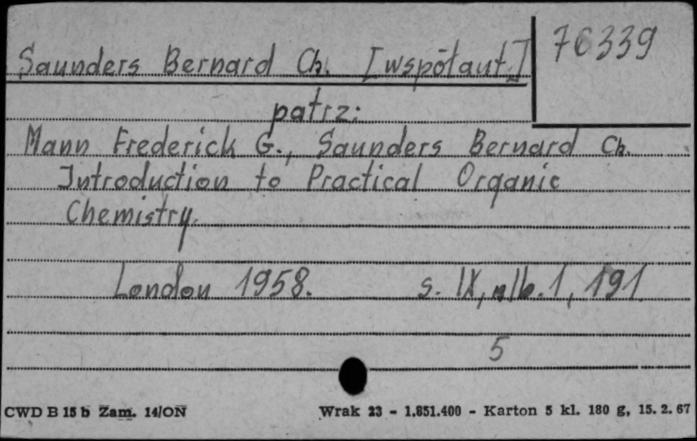 Saunders Bernard Ch. [współaut.]
76339
patrz:
Mann Frederick G., Saunders Bernard Ch.
Introduction to Practical Organic
Chemistry.
London 1958. s. IX, nlb. 1, 191.
5
CWD B 15 b Zam. 14/ON
Wrak 23 - 1.851.400 - Karton 5 kl. 180 g, 15. 2. 67